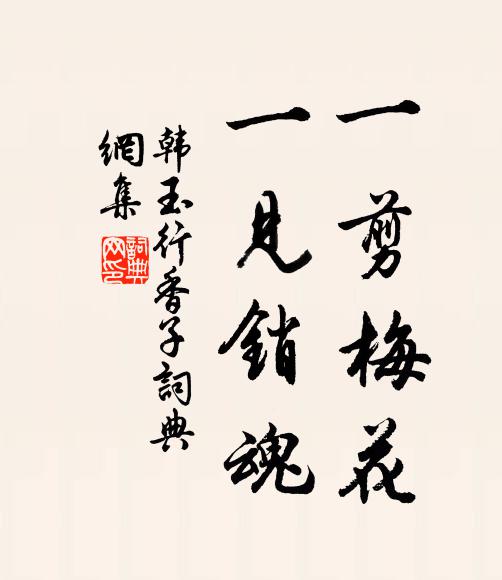 一剪梅花
一見銷魂
韩玉行香子詞典
網集
詞典
网印